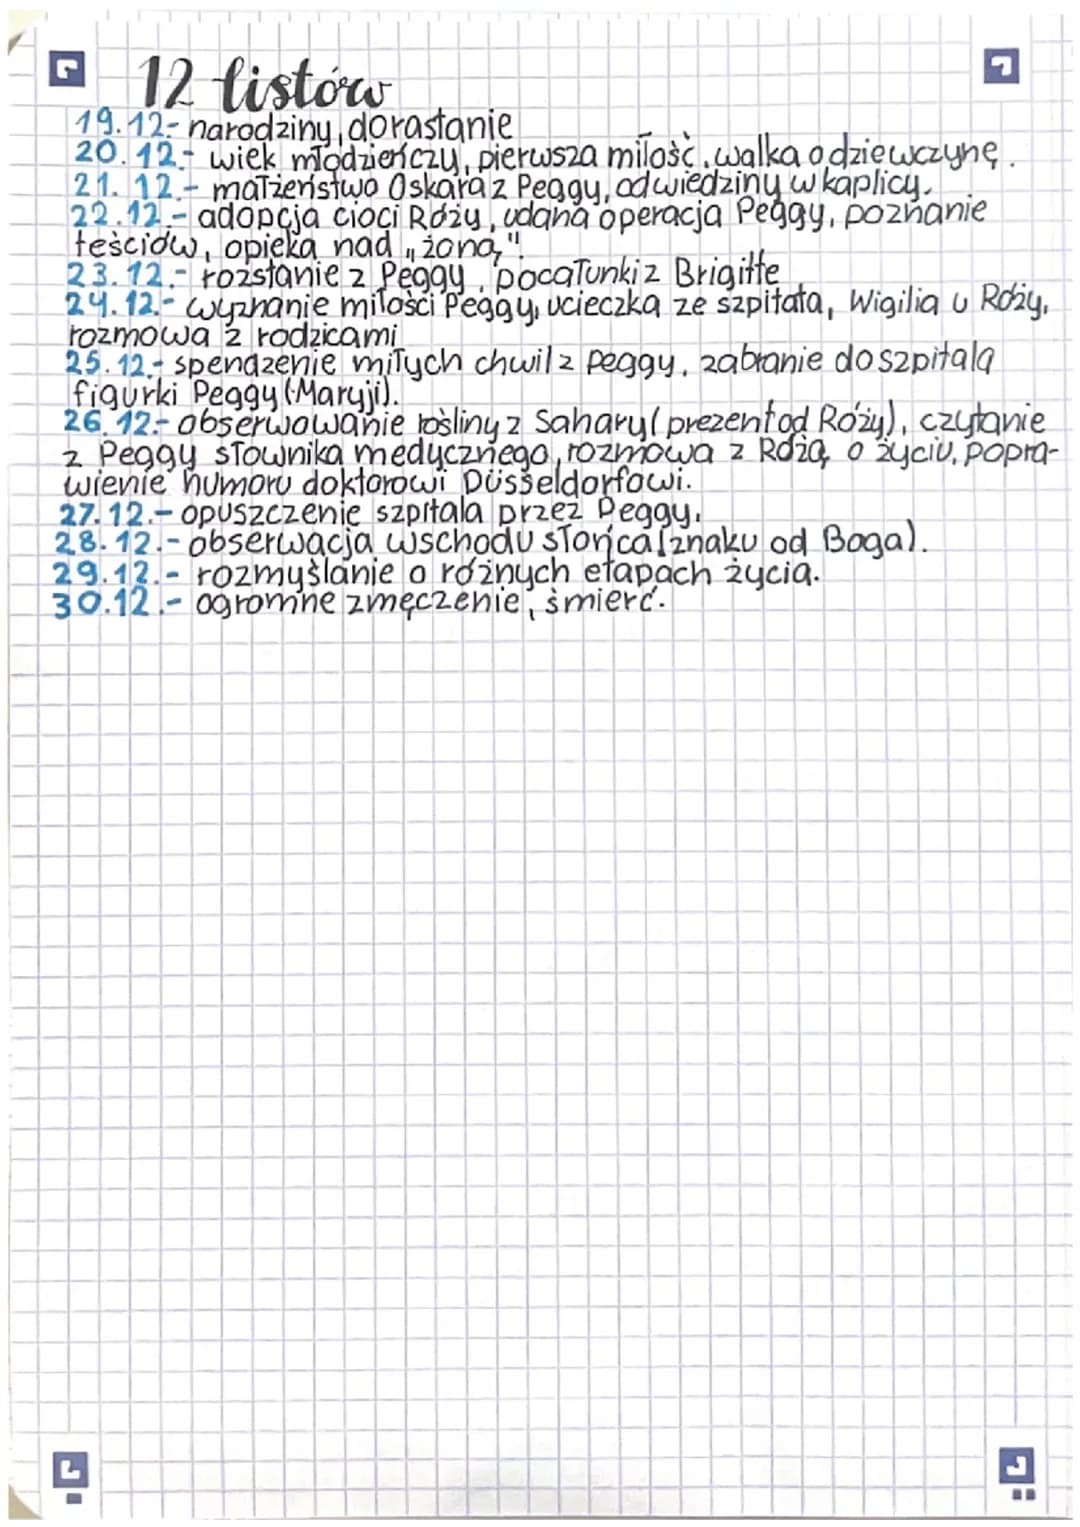 12 listów
19.12.- narodziny, dorastanie
20.12.- wiek młodzieńczy, pierwsza miłość, walka o dziewczynę.
21. 12.- małżeństwo Oskara z Peggy, odwiedziny w kaplicy.
22.12.- adopcja cioci Róży, udana operacja Peggy, poznanie
teściów, opieka nad „żoną".
23.12.- rozstanie z Peggy, pocałunki z Brigitte
24.12.- wyznanie miłości Peggy, ucieczka ze szpitala, Wigilia u Róży,
rozmowa z rodzicami
25.12.- spendzenie miłych chwil z Peggy, zabranie do szpitala
figurki Peggy (Maryji).
26.12.- obserwowanie rośliny z Sahary (prezent od Róży), czytanie
z Peggy słownika medycznego, rozmowa z Różą o życiu, popra-
wienie humoru doktorowi Düsseldorfowi.
27.12.- opuszczenie szpitala przez Peggy.
28.12.- obserwacja wschodu słońca (znaku od Boga).
29.12.- rozmyślanie o różnych etapach życia.
30.12.- ogromne zmęczenie, śmierć.